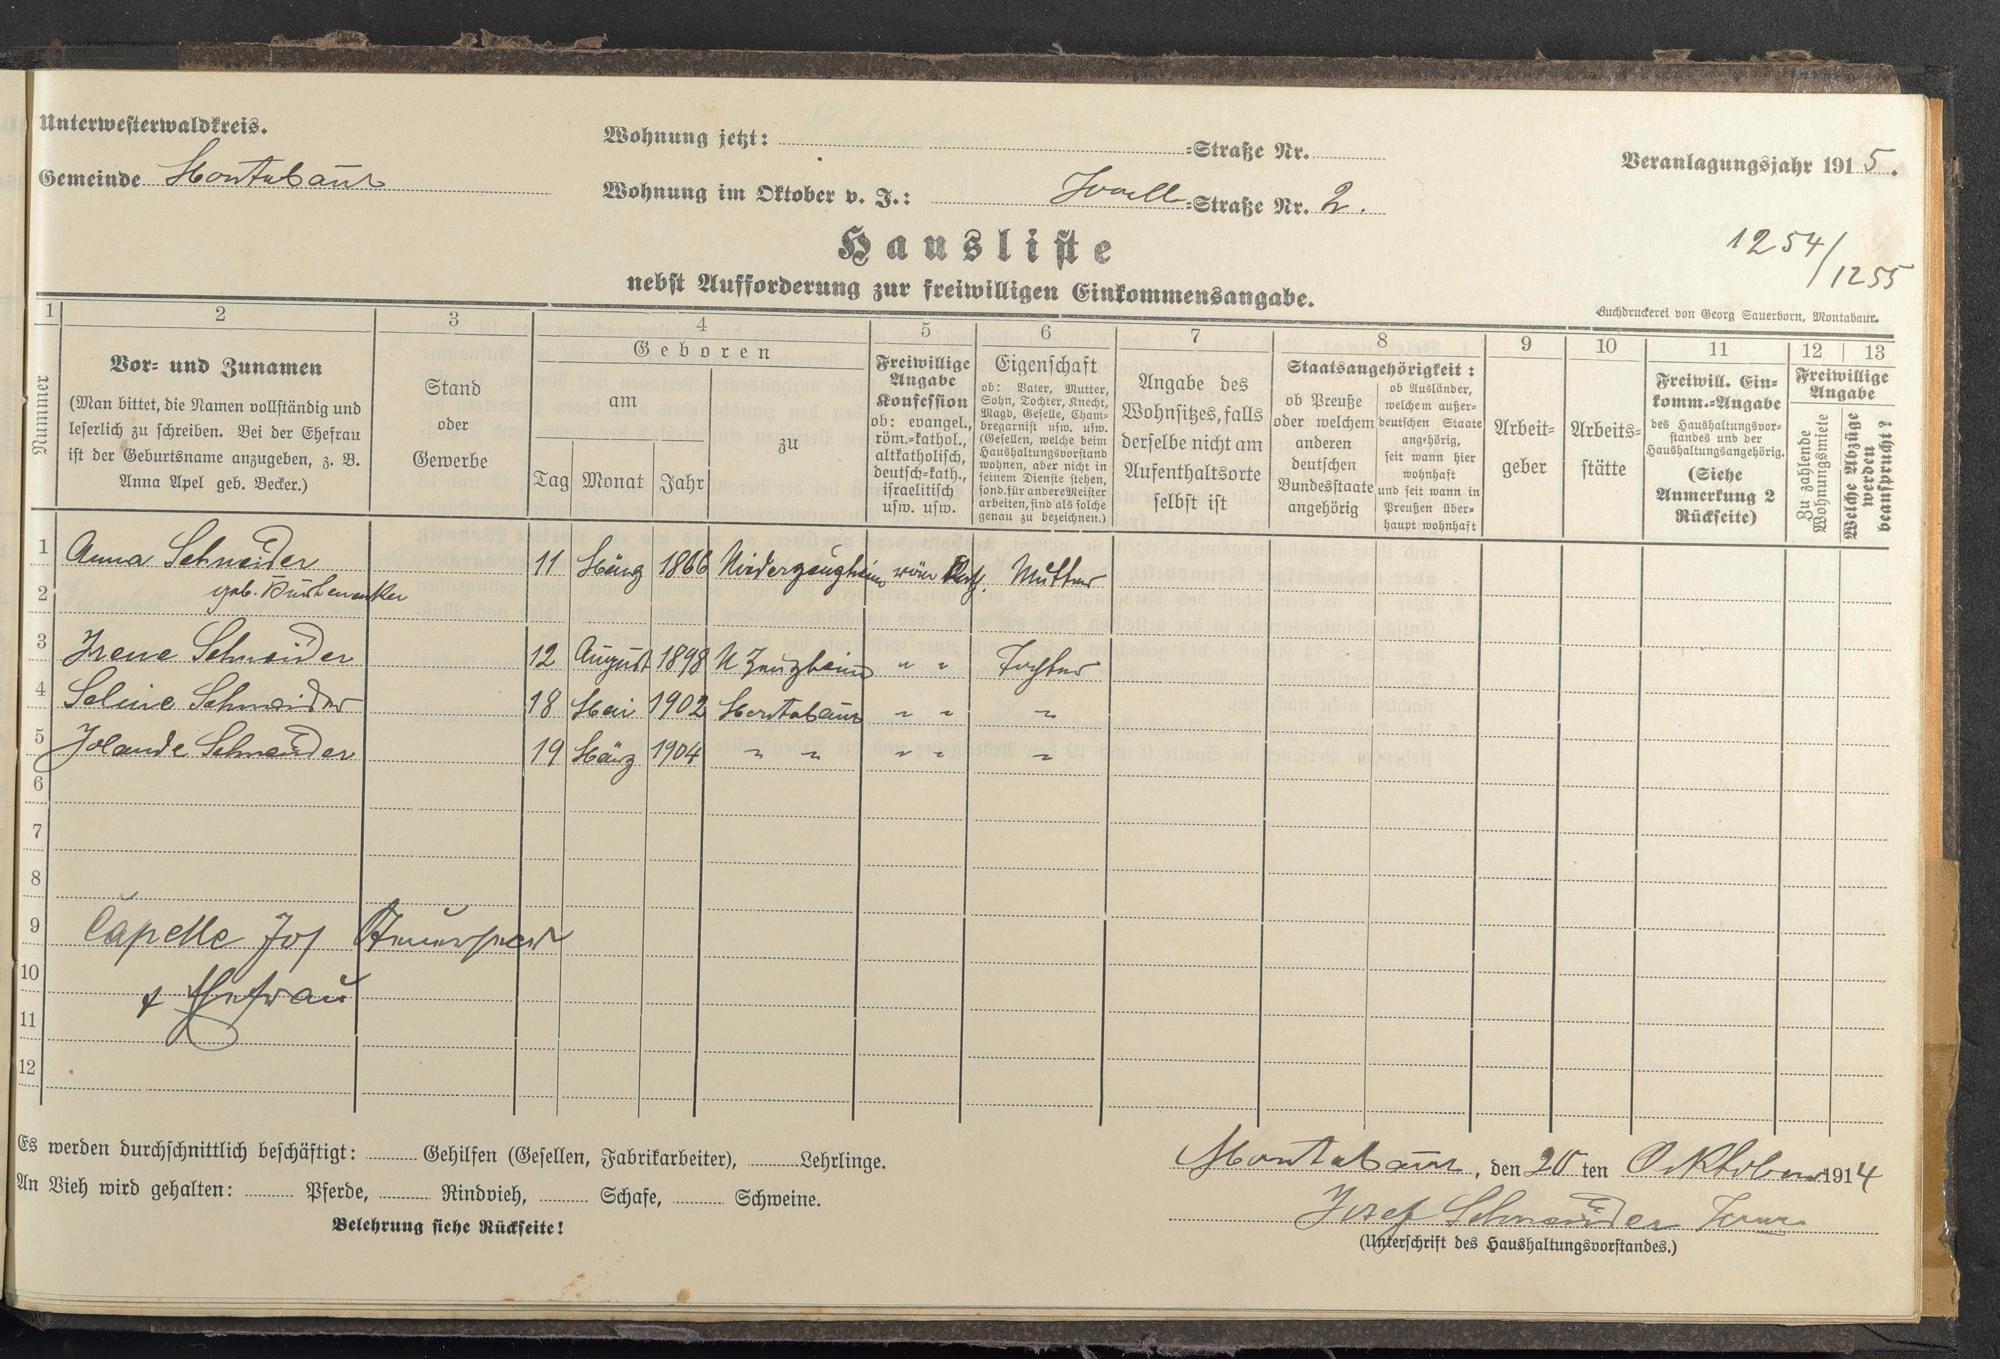 Unterwesterwaldkreis.
Gemeinde Montabaur
Wohnung jetzt: -Straße Nr.
Wohnung im Oktober v. J.: -Straße Nr. 2.
Veranlagungsjahr 1915.
Hausliste
nebst Aufforderung zur freiwilligen Einkommensangabe.
1254/1255
Buchdruckerei von Georg Sauerborn, Montabaur.
1 2 3 4 5 6 7 8 9 10 11 12 13
Nummer
Vor- und Zunamen
(Man bittet, die Namen vollständig und
leserlich zu schreiben. Bei der Ehefrau
ist der Geburtsname anzugeben, z. B.
Anna Apel geb. Becker.)
Stand
oder
Gewerbe
Geboren
am
Tag Monat Jahr
zu
Freiwillige
Angabe
Konfession
ob: evangel.,
röm.-kathol.,
altkatholisch,
deutsch-kath.,
israelitisch
usw. usw.
Eigenschaft
ob: Vater, Mutter,
Sohn, Tochter, Knecht,
Magd, Geselle, Cham-
bregarnist usw. usw.
(Gesellen, welche beim
Haushaltungsvorstand
wohnen, aber nicht in
seinem Dienste stehen,
sond. für andere Meister
arbeiten, sind als solche
genau zu bezeichnen.)
Angabe des
Wohnsitzes, falls
derselbe nicht am
Aufenthaltsorte
selbst ist
Staatsangehörigkeit:
ob Preuße
oder welchem
anderen
deutschen
Bundesstaate
angehörig
ob Ausländer,
welchem außer-
deutschen Staate
angehörig,
seit wann hier
wohnhaft
und seit wann in
Preußen über-
haupt wohnhaft
Arbeit-
geber
Arbeits-
stätte
Freiwill. Ein-
komm.-Angabe
des Haushaltungsvor-
standes und der
Haushaltungsangehörig.
(Siehe
Anmerkung 2
Rückseite)
Freiwillige
Angabe
Zu zahlende
Wohnungsmiete
Welche Abzüge
werden
beansprucht?
1 Anna Schneider 11 März 1866 Niederzeugheim röm Kath. Mutter
2 geb.
3 Irene Schneider 12 August 1898 N Zeugheim " " Tochter
4 Seline Schneider 18 Mai 1902 Montabaur " " "
5 Jolande Schneider 19 März 1904 " " " " "
6
7
8
9 Capelle Jos
10 + Ehefrau
11
12
Es werden durchschnittlich beschäftigt: Gehilfen (Gesellen, Fabrikarbeiter), Lehrlinge.
An Vieh wird gehalten: Pferde, Rindvieh, Schafe, Schweine.
Belehrung siehe Rückseite!
Montabaur, den 20 ten Oktober 1914
Josef Schneider
(Unterschrift des Haushaltungsvorstandes.)